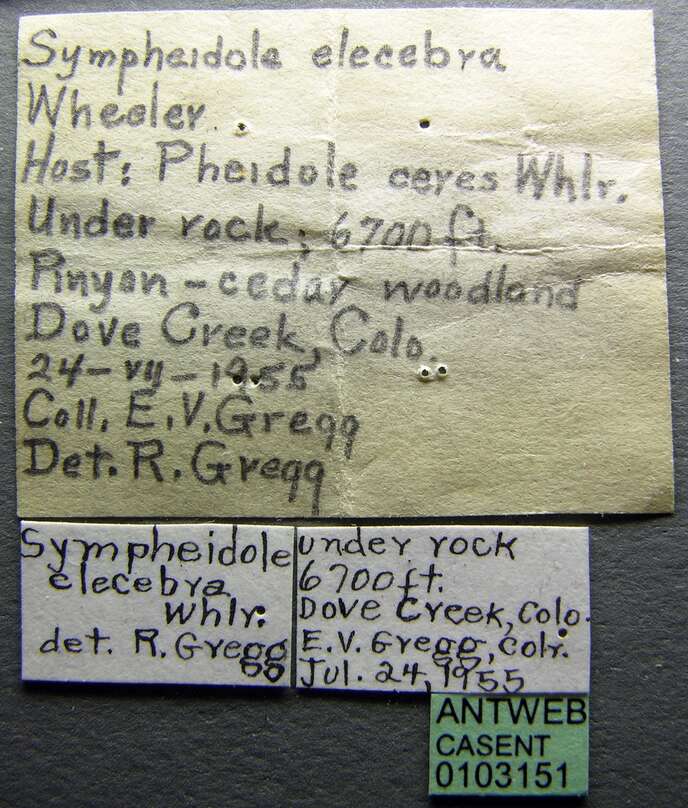 Sympheidole elecebra
Wheeler
Host: Pheidole ceres Whlr.
Under rock; 6700 ft.
Pinyon - cedar woodland
Dove Creek, Colo.
24-VII-1955
Coll. E.V. Gregg
Det. R. Gregg
Sympheidole
elecebra
Whlr.
det. R. Gregg
under rock
6700ft.
Dove Creek, Colo.
E.V. Gregg, colr.
Jul. 24, 1955
ANTWEB
CASENT
0103151